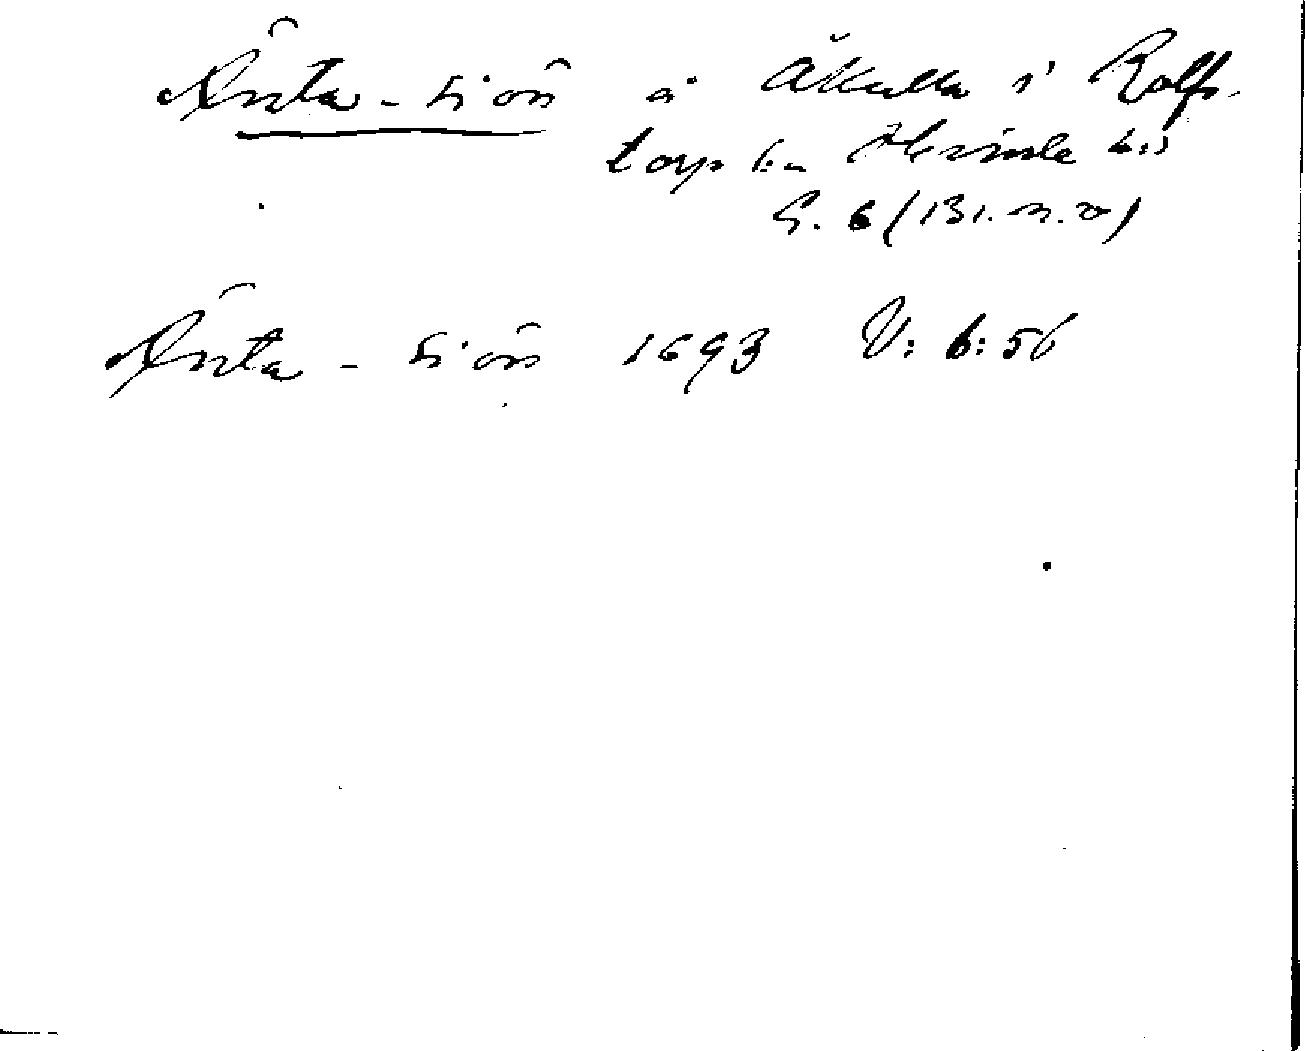 Änta-siön å Åkulla i Rolfs-
torp sn Himle hd
G. 6 (131. n. ö)
Änta-siön 1693 V: 6: 56